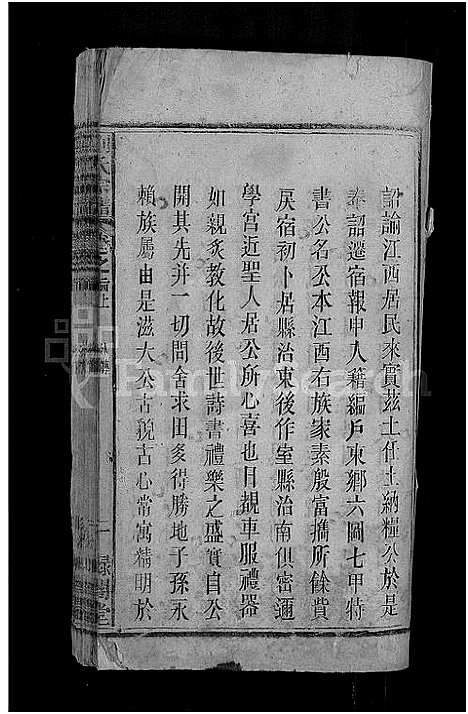 詔諭江西居民來實茲土任土納糧公於是
奉詔遷宿報申入籍編戶東鄉六圖七甲特
書公名公本江西右族家素殷富攜所餘貲
戾宿初卜居縣治東後作室縣治南俱密邇
學宮近聖人居公所心喜也目覩車服禮器
如親炙教化故後世詩書禮樂之盛實自公
開其先并一切問舍求田多得勝地子孫永
賴族屬由是滋大公古貌古心常寓精明於
氏宗譜
一
堂
FamilySearch